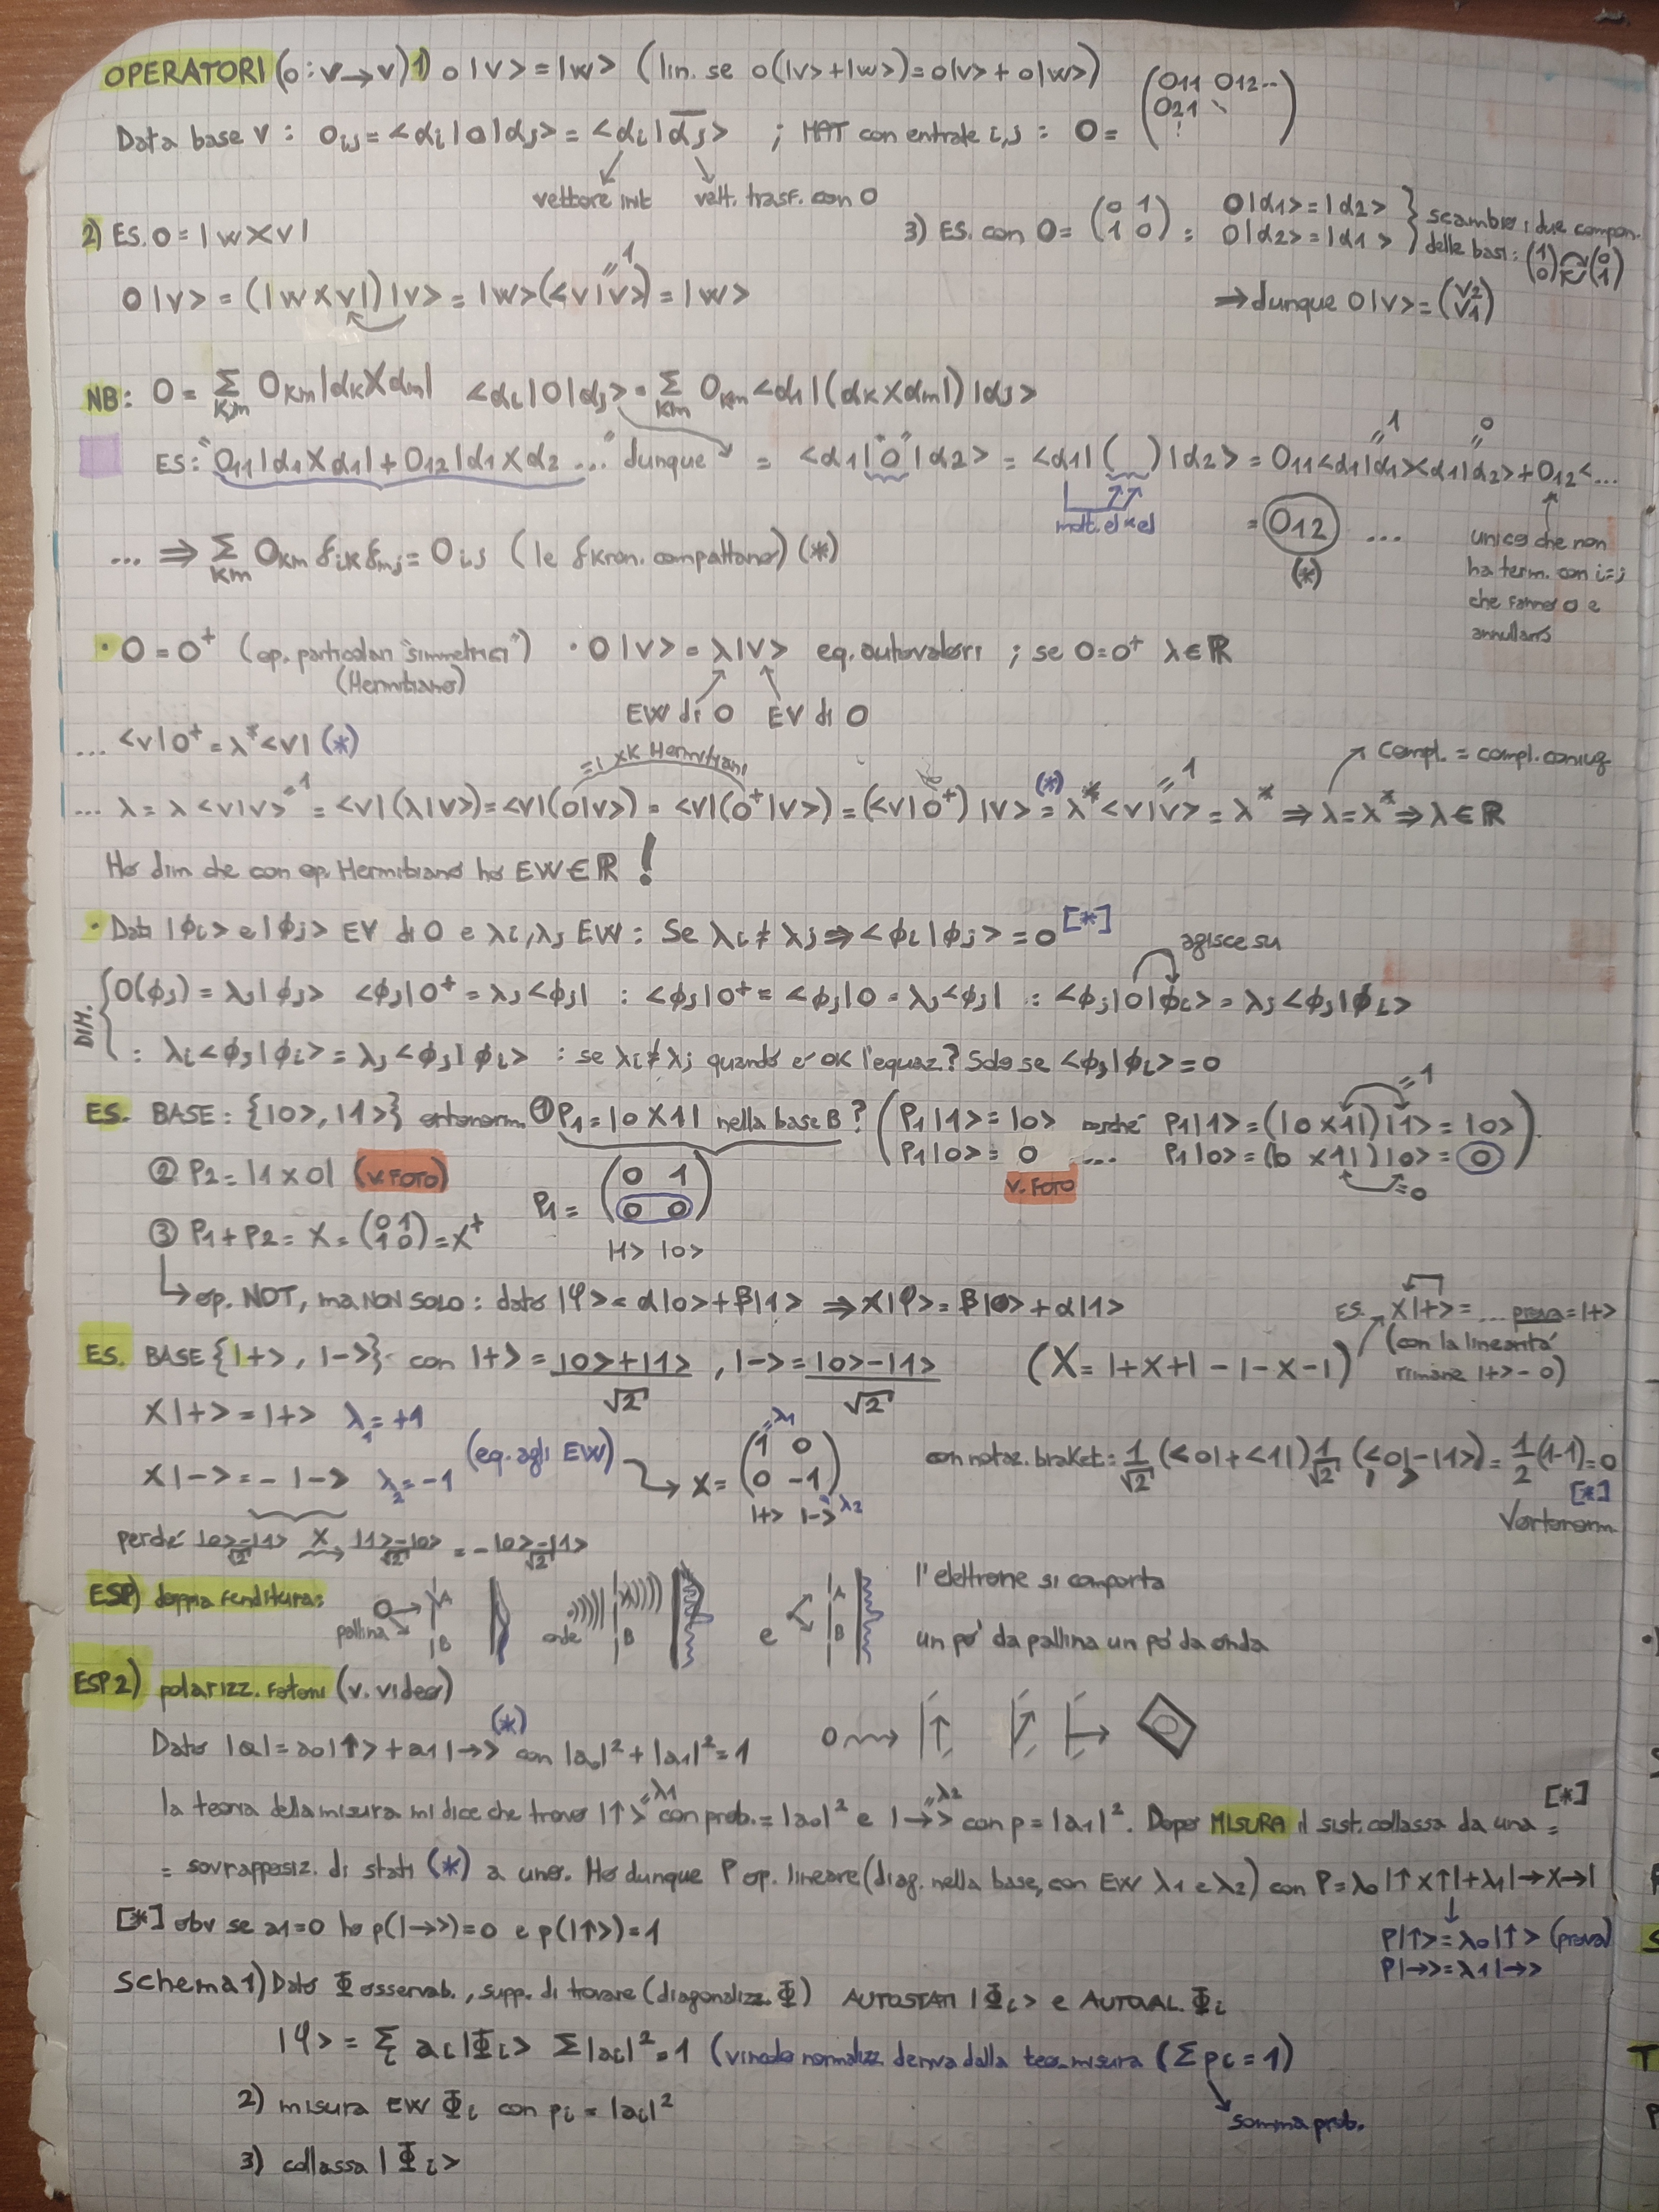 OPERATORI (O: V→V) 1) O|V> = |W> (lin. se O(|V>+|W>)=O|V> + O|W>)
Data base V: Oij = <αi|O|αj> = <αi|α̅j> ; MAT con entrate i,j : O = (O11 O12.. O21
vettore init vett. trasf. con O
2) ES. O = |W X V|
3) ES. con O = (0 1 1 0) : O|α1> = |α2> O|α2> = |α1> } scambio i due compon. delle basi: (1 0) (0 1)
O|V> = (|W X V|)|V> = |W>(<V|V>) = |W> =1
⇒ dunque O|V> = (V2 V1)
NB: O = Σkm Okm |αk X αm| <αi|O|αj> = Σkm Okm <αi|(αk X αm|)|αj>
ES: "O11|α1 X α1| + O12|α1 X α2 ..." dunque = <α1|"O"|α2> = <α1|( )|α2> = O11<α1|α1><α1|α2> + O12<... =1 =0
molt. el x el
= O12 ... (*)
unico che non ha term. con i=j che fanno 0 e annullano
... ⇒ Σkm Okm δik δmj = Oij (le δ kron. compattano) (*)
· O = O⁺ (op. particolari "simmetrici") (Hermitiano) · O|V> = λ|V> eq. autovalori ; se O=O⁺ λ∈ℝ
EW di O EV di O
... <V|O⁺ = λ*<V| (*)
=| xk Hermitiano
Compl. = compl. coniug
... λ = λ<V|V> =1 = <V|(λ|V>) = <V|(O|V>) = <V|(O⁺|V>) = (<V|O⁺)|V> (*)= λ*<V|V> =1 = λ* ⇒ λ=λ* ⇒ λ∈ℝ
Ho dim che con op. Hermitiano ho EW∈ℝ !
· Dati |ϕi> e |ϕj> EV di O e λi, λj EW : Se λi ≠ λj ⇒ <ϕi|ϕj> = 0 [*]
agisce su
DIM. { O(ϕj) = λj|ϕj> <ϕj|O⁺ = λj<ϕj| : <ϕj|O⁺ = <ϕj|O = λj<ϕj| : <ϕj|O|ϕi> = λj<ϕj|ϕi>
: λi<ϕj|ϕi> = λj<ϕj|ϕi> : se λi≠λj quando è ok l'equaz? Solo se <ϕj|ϕi> = 0
ES. BASE: {|0>, |1>} ortonorm. ① P1 = |0 X 1| nella base B? (P1|1> = |0> perché P1|1> = (|0 x 1|)|1> = |0> =1
P1|0> = 0 .... P1|0> = (|0 x 1|)|0> = 0) =0
② P2 = |1 x 0| (V. FOTO)
V. FOTO
P1 = (0 1 0 0)
|1> |0>
③ P1 + P2 = X = (0 1 1 0) = X⁺
↳ op. NOT, ma NON SOLO : dato |φ> = α|0> + β|1> ⇒ X|φ> = β|0> + α|1>
ES. X|+> = ... prova = |+>
(con la linearità rimane |+> - 0)
ES. BASE {|+>, |->} con |+> = |0>+|1> / √2 , |-> = |0>-|1> / √2
(X = |+ X +| - |- X -|)
X|+> = |+> λ1 = +1
X|-> = - |-> λ2 = -1
(eq. agli EW) → X = (1 0 0 -1) =λ1 λ2
|+> |->
con notaz. braket: 1/√2 (<0|+<1|) 1/√2 (<0|-|1>) = 1/2 (1-1) = 0 [*]
√ortonorm
perché |0>-|1> / √2 X |1>-|0> / √2 = - |0>-|1> / √2
ESP) doppia fenditura:
pallina A B
onde B
e A B
l'elettrone si comporta
un po' da pallina un po' da onda
ESP 2) polarizz. fotoni (v. video)
Dato |a| = a0|↑> + a1|→> (*) con |a0|² + |a1|² = 1
la teoria della misura mi dice che trovo |↑> =λ1 con prob. = |a0|² e |→> =λ2 con p = |a1|². Dopo MISURA il sist. collassa da una = [*]
= sovrapposiz. di stati (*) a uno. Ho dunque P op. lineare (diag. nella base, con EW λ1 e λ2) con P = λ0|↑ X ↑| + λ1|→ X →|
P|↑> = λ0|↑> (prova)
P|→> = λ1|→>
[*] obv se a1=0 ho p(|→>)=0 e p(|↑>)=1
Schema 1) Dato Φ osservab., supp. di trovare (diagonalizz. Φ) AUTOSTATI |Φi> e AUTOVAL. Φi
|φ> = Σi ai|Φi> Σ|ai|² = 1 (vincolo normalizz. deriva dalla teo. misura (Σ pi = 1)
somma prob.
2) misura EW Φi con pi = |ai|²
3) collassa |Φi>